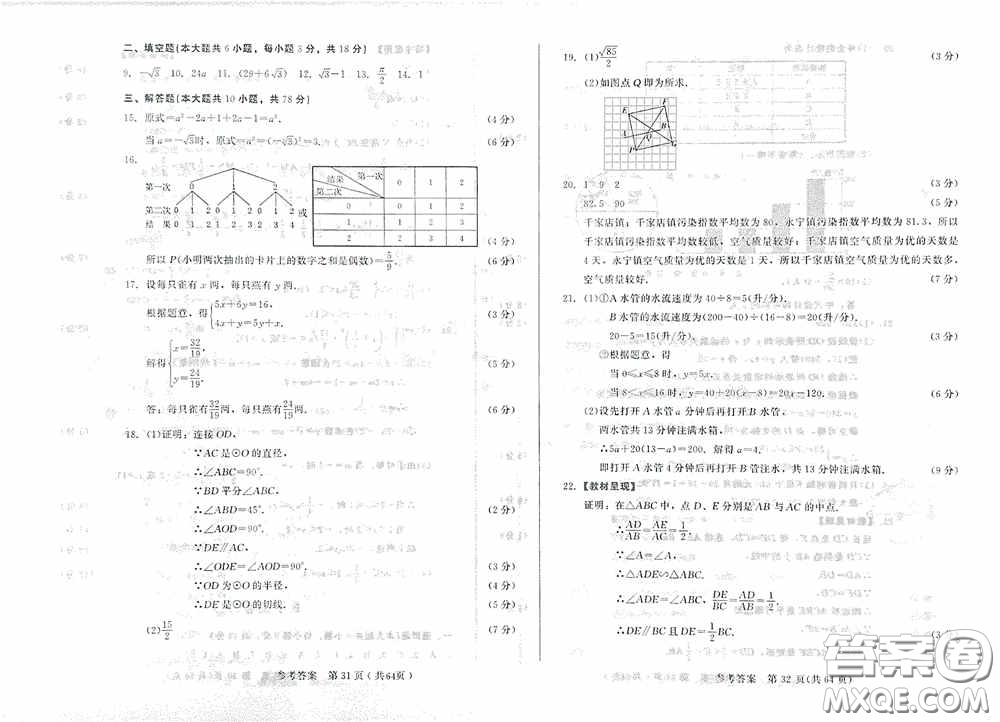 二、填空题(本大题共 6 小题,每小题 3 分,共 18 分)
9. -√3 10. 24a 11. (29+6√3) 12. √3-1 13. π/2 14. 1
三、解答题(本大题共 10 小题,共 78 分)
15. 原式=a²-2a+1+2a-1=a². (4 分)
当 a=-√3时,原式=a²=(-√3)²=3. (6 分)
16.
第一次 0 1 2
第二次 0 1 2 0 1 2 0 1 2 或
结 果 0 1 2 1 2 3 2 3 4
结果 第一次 第二次 0 1 2
0 0 1 2
1 1 2 3
2 2 3 4
(4 分)
所以 P(小明两次抽出的卡片上的数字之和是偶数)=5/9. (6 分)
17. 设每只雀有 x 两,每只燕有 y 两.
根据题意,得{5x+6y=16, 4x+y=5y+x. (3 分)
解得{x=32/19, y=24/19. (5 分)
答:每只雀有32/19两,每只燕有24/19两. (6 分)
18. (1)证明:连接 OD,
∵AC 是⊙O 的直径,
∴∠ABC=90°.
∵BD 平分∠ABC,
∴∠ABD=45°. (2 分)
∴∠AOD=90°.
∵DE∥AC,
∴∠ODE=∠AOD=90°, (3 分)
∵OD 为⊙O 的半径, (4 分)
∴DE 是⊙O 的切线. (5 分)
(2)15/2 (7 分)
参考答案 第 31 页 (共 64 页)
19. (1)√85/2 (3 分)
(2)如图点 Q 即为所求.
E F Q G P
20. 1 9 2 (3 分)
82.5 90 (5 分)
千家店镇:千家店镇污染指数平均数为 80,永宁污染指数平均数为 81.3,所以
千家店镇污染指数平均数较低,空气质量较好;千家店镇空气质量为优的天数是
4 天,永宁镇空气质量为优的天数是 1 天,所以千家店镇空气质量为优的天数多,
空气质量较好. (7 分)
21. (1)①A 水管的水流速度为 40÷8=5(升/分).
B 水管的水流速度为(200-40)÷(16-8)=20(升/分).
20-5=15(升/分). (3 分)
②根据题意,得
当 0≤x≤8 时,y=5x.
当 8≤x≤16 时,y=40+20(x-8)=20x-120. (6 分)
(2)设先打开 A 水管 a 分钟后再打开 B 水管,
两水管共 13 分钟注满水箱,
∴5a+20(13-a)=200. 解得 a=4.
即打开 A 水管 4 分钟后再打开 B 管注水,共 13 分注满水箱. (9 分)
22. 【教材呈现】
证明:在△ABC 中,点 D、E 分别是 AB 与 AC 的中点.
∴AD/AB=AE/AC=1/2.
∵∠A=∠A,
∴△ADE∽△ABC.
∴∠ADE=∠ABC, DE/BC=AD/AB=1/2.
∴DE∥BC 且 DE=1/2BC. (3
参考答案 第 32 页(共 64 页)
答案圈